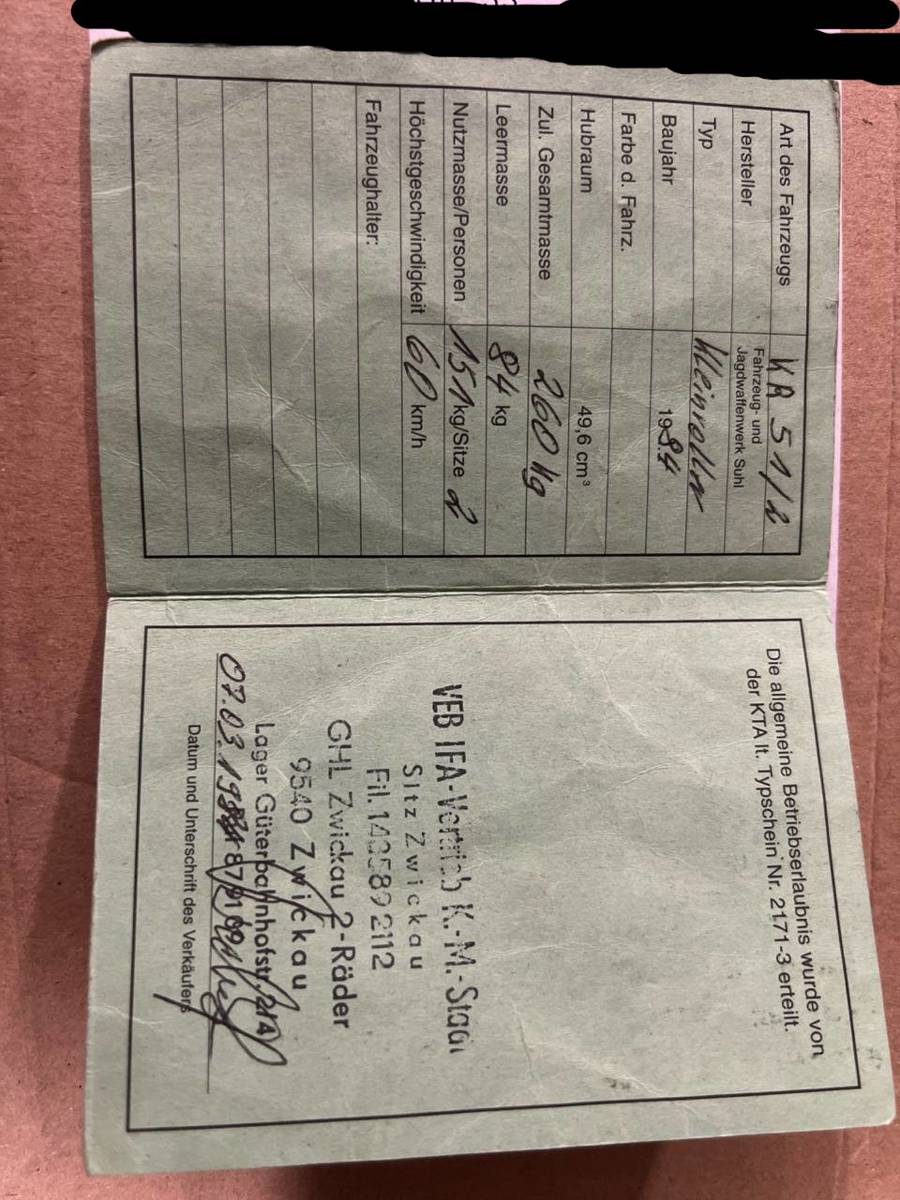 Art des Fahrzeugs KR 51/2
Hersteller Fahrzeug- und
Jagdwaffenwerk Suhl
Typ Kleinroller
Baujahr 1984
Farbe d. Fahrz.
Hubraum 49,6 cm³
Zul. Gesamtmasse 260 kg
Leermasse 84 kg
Nutzmasse/Personen 151 kg/Sitze 2
Höchstgeschwindigkeit 60 km/h
Fahrzeughalter:
Die allgemeine Betriebserlaubnis wurde von
der KTA lt. Typschein Nr. 2171-3 erteilt.
VEB IFA-Vertrieb K.-M.-Stadt
Sitz Zwickau
Fil. 1435892112
GHL Zwickau 2-Räder
9540 Zwickau
Lager Güterbahnhofstr. 2/4
07.03.1984
Datum und Unterschrift des Verkäufers